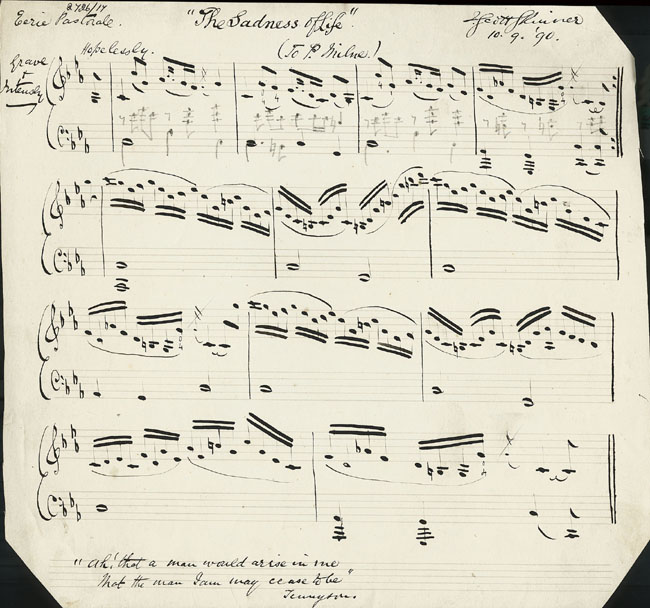 2786/17
Eerie Pastorale. "The Sadness of life". J. Scott Skinner
(To P. Milne.) 10. 9. '90.
Hopelessly.
Grave
+
Intensely
"Ah! that a man would arise in me
That the man I am may cease to be"
Tennyson.